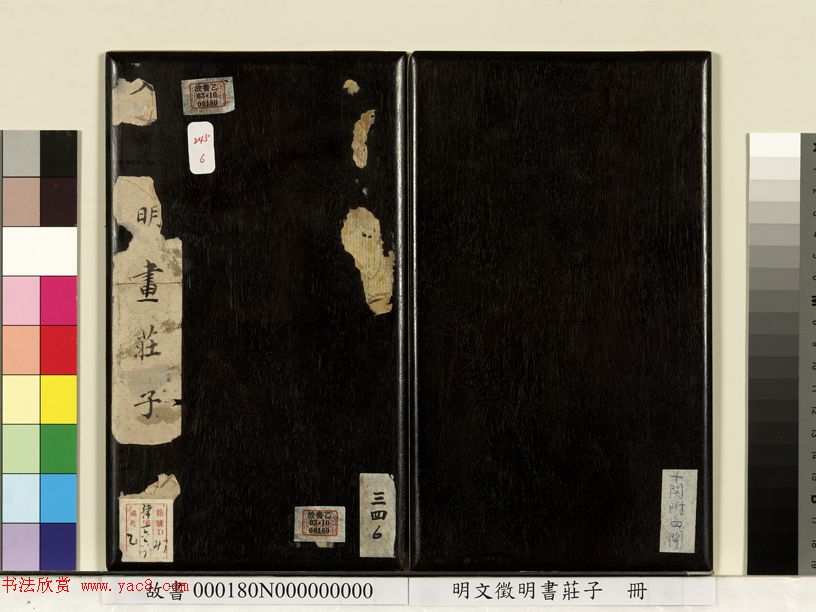 故書乙
03•10
00180
245
6
明
書
莊
子
故書乙
03•10
00180
三四6
十開附四開
書法欣赏 www.yac8.com
故書 000180N000000000
明文徵明書莊子 冊